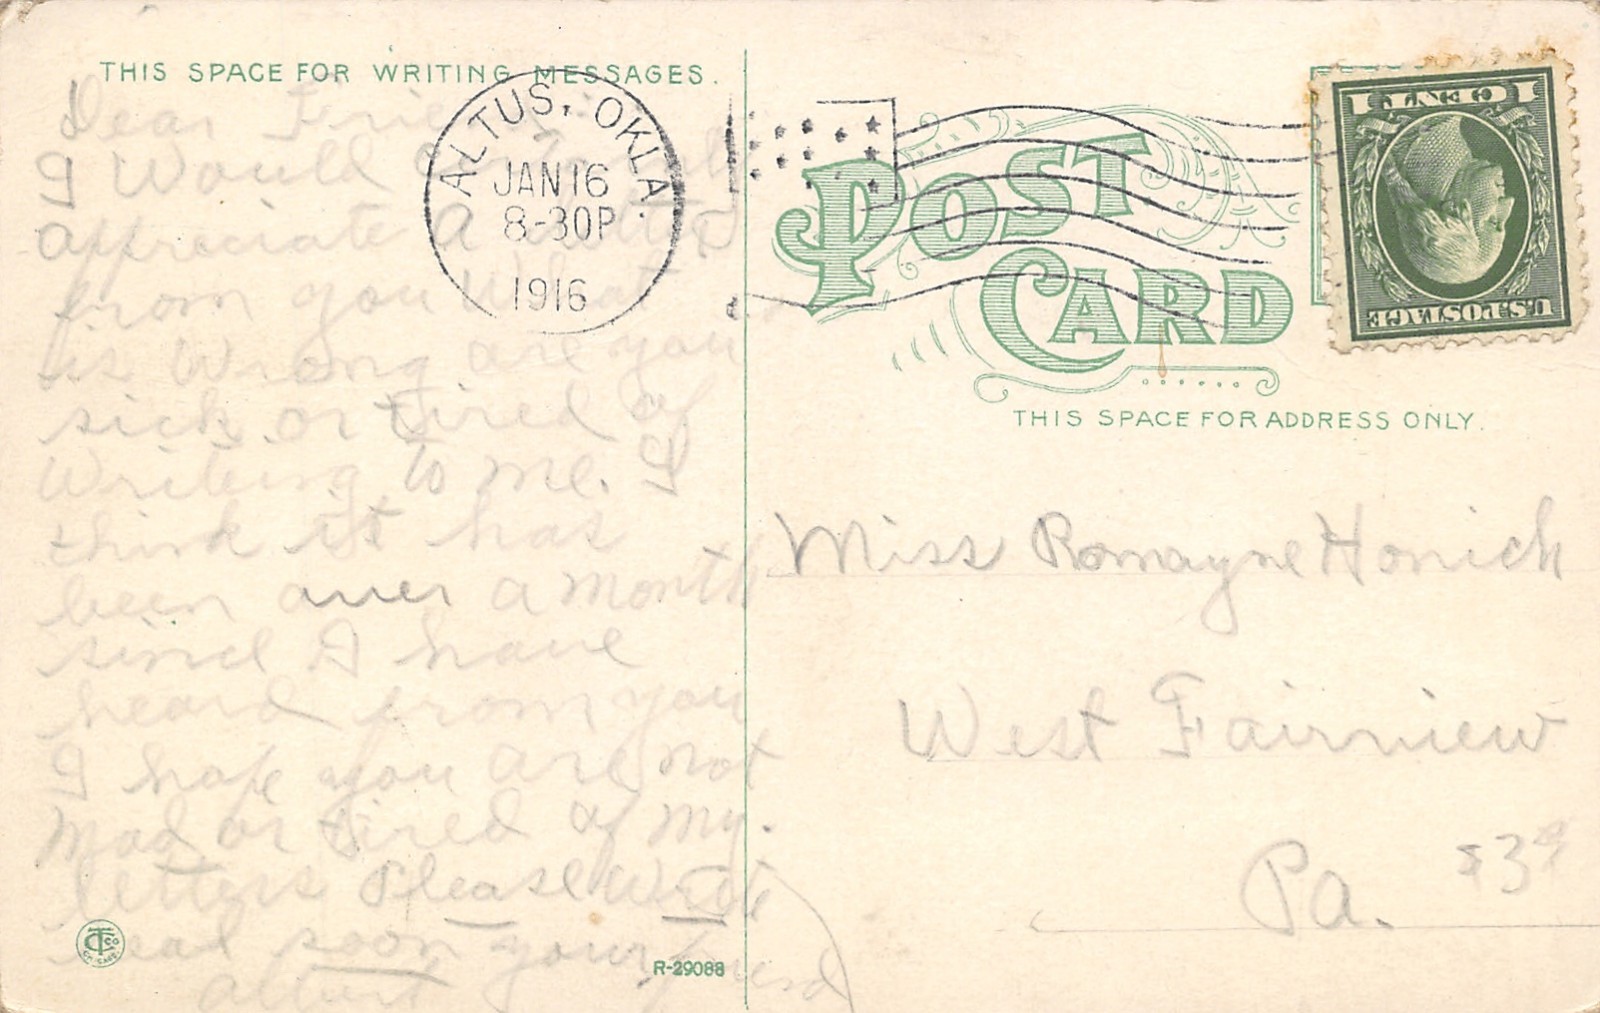 THIS SPACE FOR WRITING MESSAGES.
Dear Friend
I Would
appreciate a letter
from you What
is Wrong are you
sick or tired of
Writing to me. I
think it has
been over a month
sinc I have
heard from you
I hope you are not
Mad or tired of my
letters Please Write
real soon your friend
Albert
R-29088
ALTUS, OKLA.
JAN 16
8-30P
1916
POST
CARD
THIS SPACE FOR ADDRESS ONLY.
U.S. POSTAGE
1 CENT 1
Miss Romayne Honich
West Fairview
Pa.